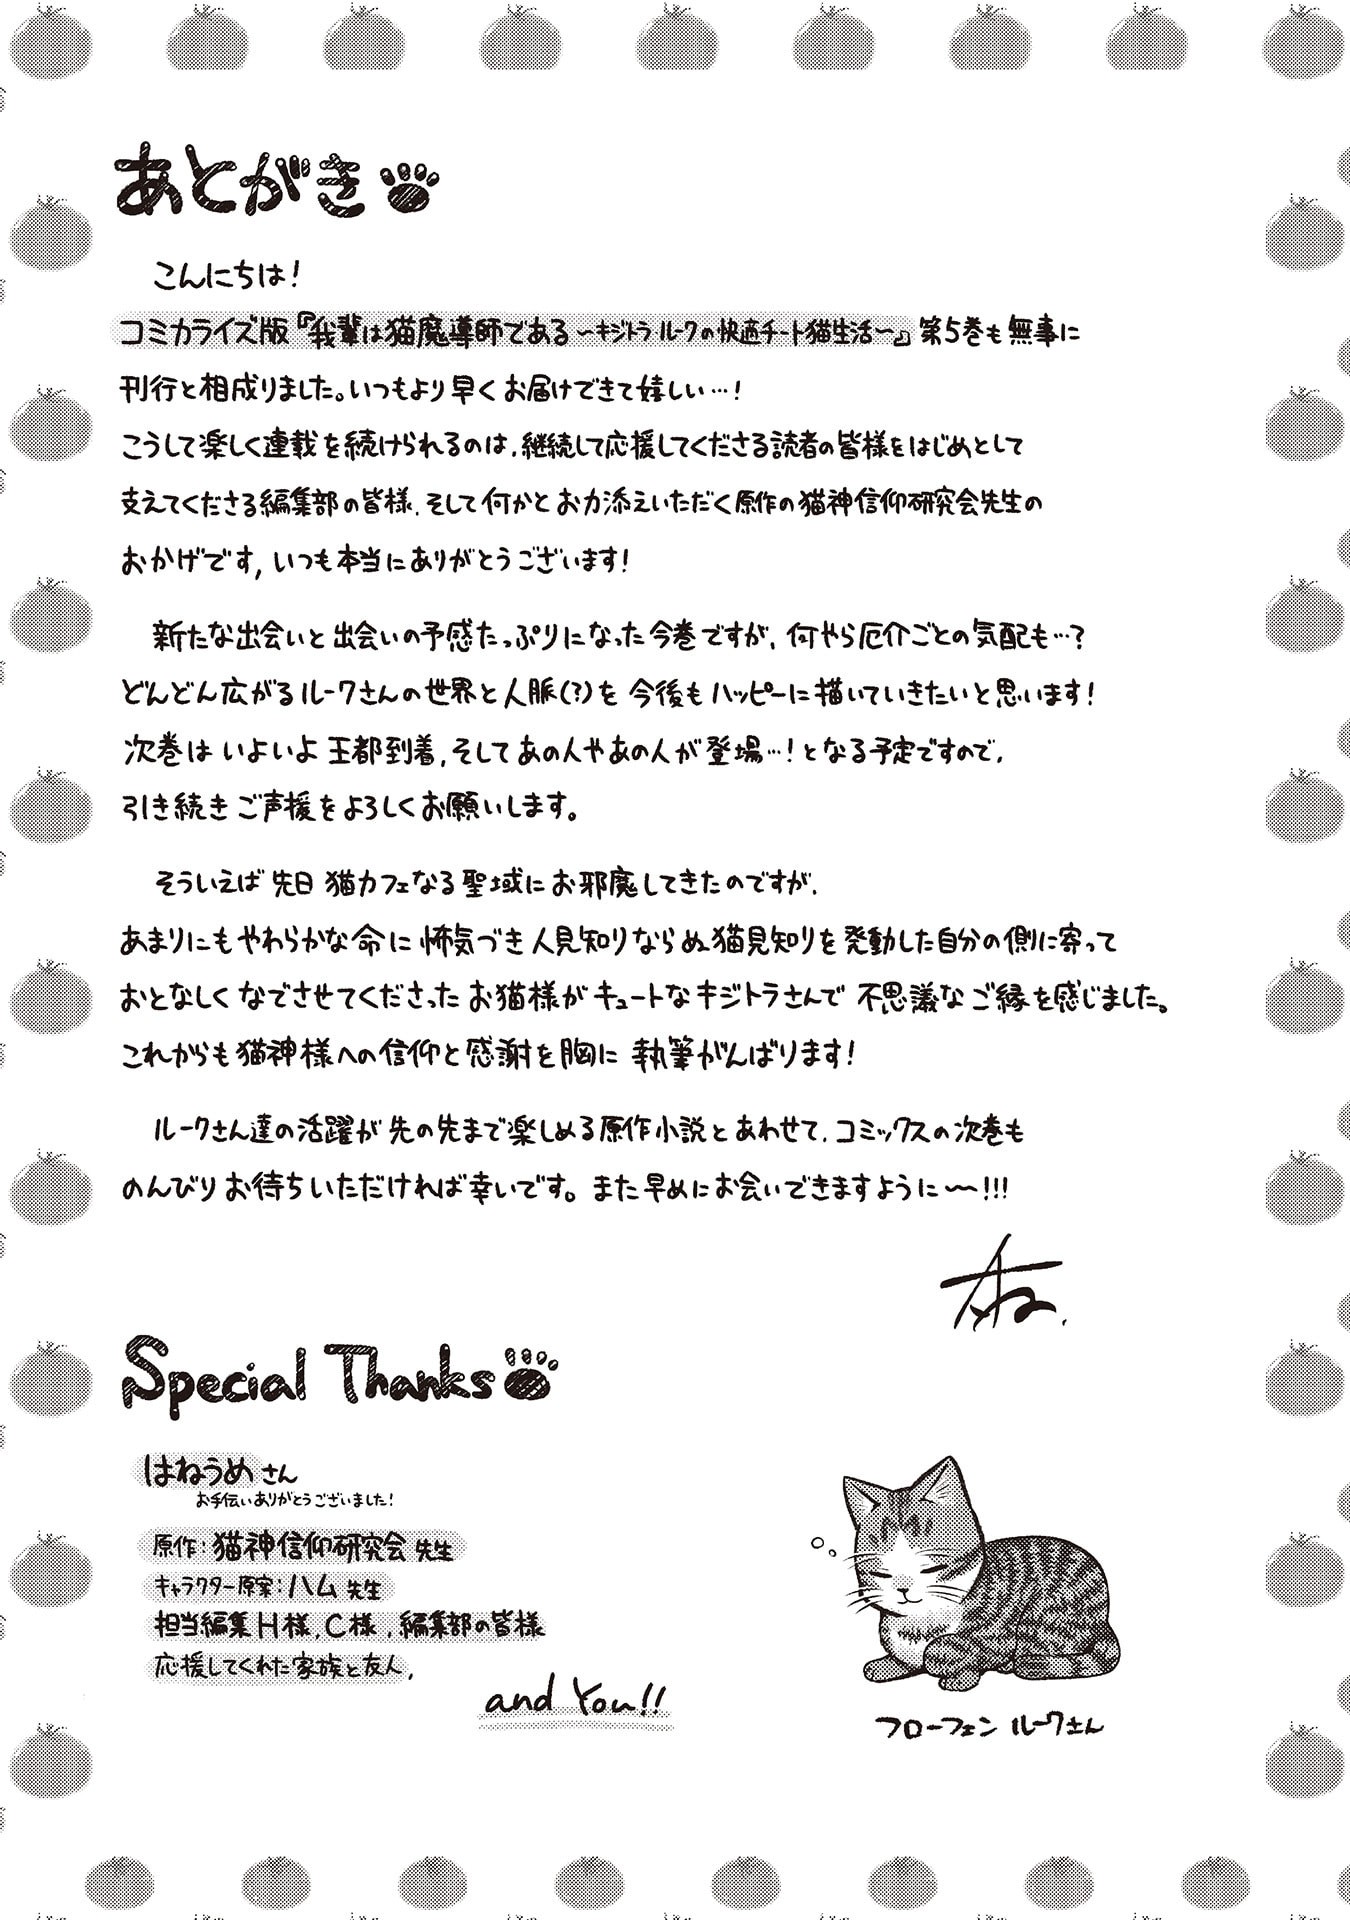 あとがき
こんにちは!
コミカライズ版『我輩は猫魔導師である 〜キジトラ ルークの快適チート猫生活〜』第5巻も無事に
刊行と相成りました。いつもより早くお届けできて嬉しい…!
こうして楽しく連載を続けられるのは、継続して応援してくださる読者の皆様をはじめとして
支えてくださる編集部の皆様、そして何かとお力添えいただく原作の猫神信仰研究会先生の
おかげです、いつも本当にありがとうございます!
新たな出会いと出会いの予感たっぷりになった今巻ですが、何やら厄介ごとの気配も…?
どんどん広がるルークさんの世界と人脈(?)を今後もハッピーに描いていきたいと思います!
次巻はいよいよ王都到着、そしてあの人やあの人が登場…!となる予定ですので、
引き続きご声援をよろしくお願いします。
そういえば先日猫カフェなる聖域にお邪魔してきたのですが、
あまりにもやわらかな命に怖気づき人見知りならぬ猫見知りを発動した自分の側に寄って
おとなしくなでさせてくださったお猫様がキュートなキジトラさんで不思議なご縁を感じました。
これからも猫神様への信仰と感謝を胸に執筆がんばります!
ルークさん達の活躍が先の先まで楽しめる原作小説とあわせて、コミックスの次巻も
のんびりお待ちいただければ幸いです。また早めにお会いできますように〜!!!
Special Thanks
はねうめさん
お手伝いありがとうございました!
原作:猫神信仰研究会先生
キャラクター原案:ハム先生
担当編集H様、C様、編集部の皆様
応援してくれた家族と友人、
and You!!
フローフェン ルークさん